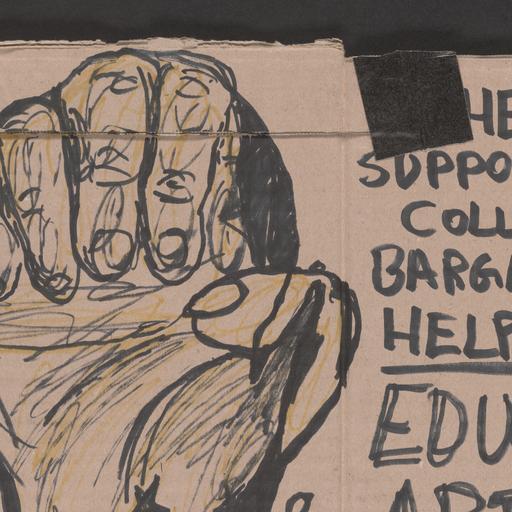 HE
SUPPO
COLL
BARGA
HELP
EDU
ART